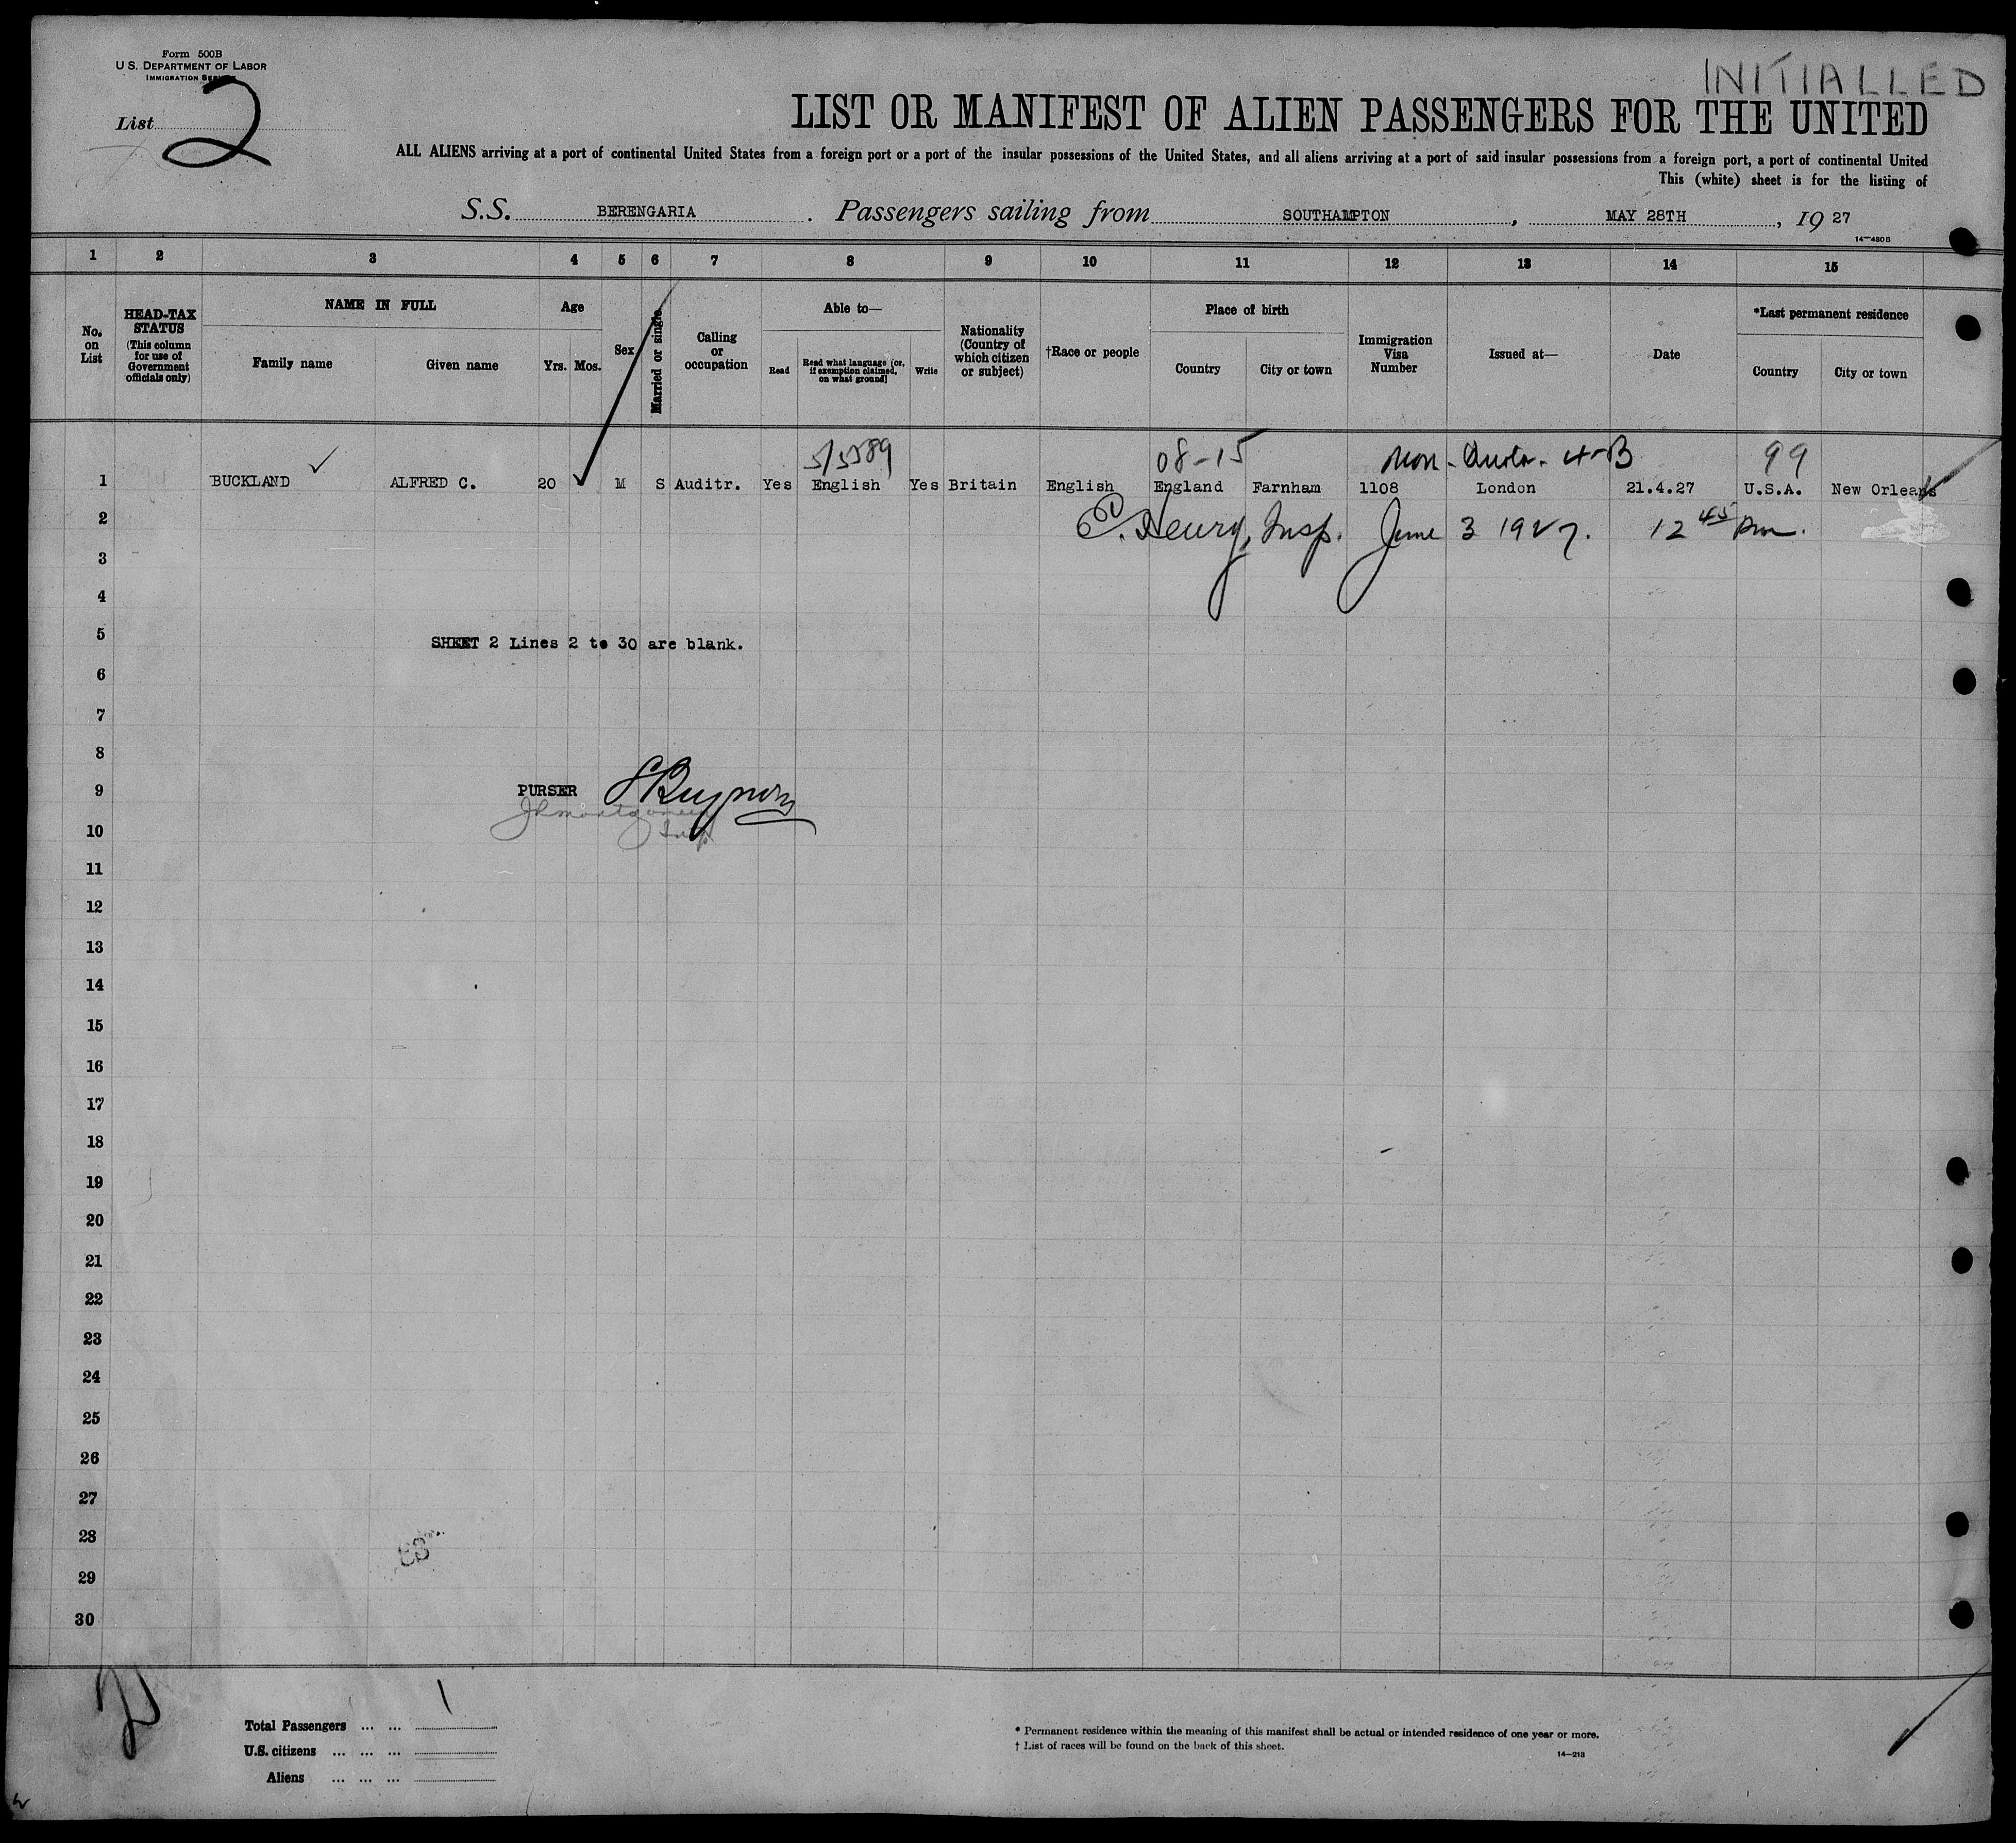 Form 500B
U S. DEPARTMENT OF LABOR
IMMIGRATION SERVICE
List 2
INITIALLED
LIST OR MANIFEST OF ALIEN PASSENGERS FOR THE UNITED
ALL ALIENS arriving at a port of continental United States from a foreign port or a port of the insular possessions of the United States, and all aliens arriving at a port of said insular possessions from a foreign port, a port of continental United
This (white) sheet is for the listing of
S.S. BERENGARIA . Passengers sailing from SOUTHAMPTON , MAY 28TH , 19 27
14-480B
1 2 3 4 5 6 7 8 9 10 11 12 13 14 15
No. on List
HEAD-TAX STATUS
(This column for use of Government officials only)
NAME IN FULL
Family name Given name
Age
Yrs. Mos.
Sex
Married or single
Calling or occupation
Able to—
Read Read what language [or, if exemption claimed, on what ground] Write
Nationality (Country of which citizen or subject)
†Race or people
Place of birth
Country City or town
Immigration Visa Number
Issued at—
Date
*Last permanent residence
Country City or town
08-15 Non-Quota-4-B 99
1 BUCKLAND ALFRED C. 20 M S Auditr. Yes English Yes Britain English England Farnham 1108 London 21.4.27 U.S.A. New Orleans
2 Henry, Insp. June 3 1927. 12 45 pm.
3
4
5 SHEET 2 Lines 2 to 30 are blank.
6
7
8
9 PURSER
10 Insp
11
12
13
14
15
16
17
18
19
20
21
22
23
24
25
26
27
28
29
30
2
Total Passengers ... ... 1
U.S. citizens ... ... ...
Aliens ... ... ...
* Permanent residence within the meaning of this manifest shall be actual or intended residence of one year or more.
† List of races will be found on the back of this sheet.
14-213